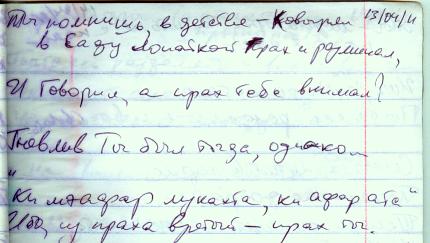 Ты помнишь в детстве – Ковырял 13/04/11
в Саду Лопаткой прах и размышлял,
И Говорил, а прах тебе внимал?
Ты был тогда, однако
"Ки ми афар луката, ки афар ата"
Ибо, из праха взятый – прах ты.